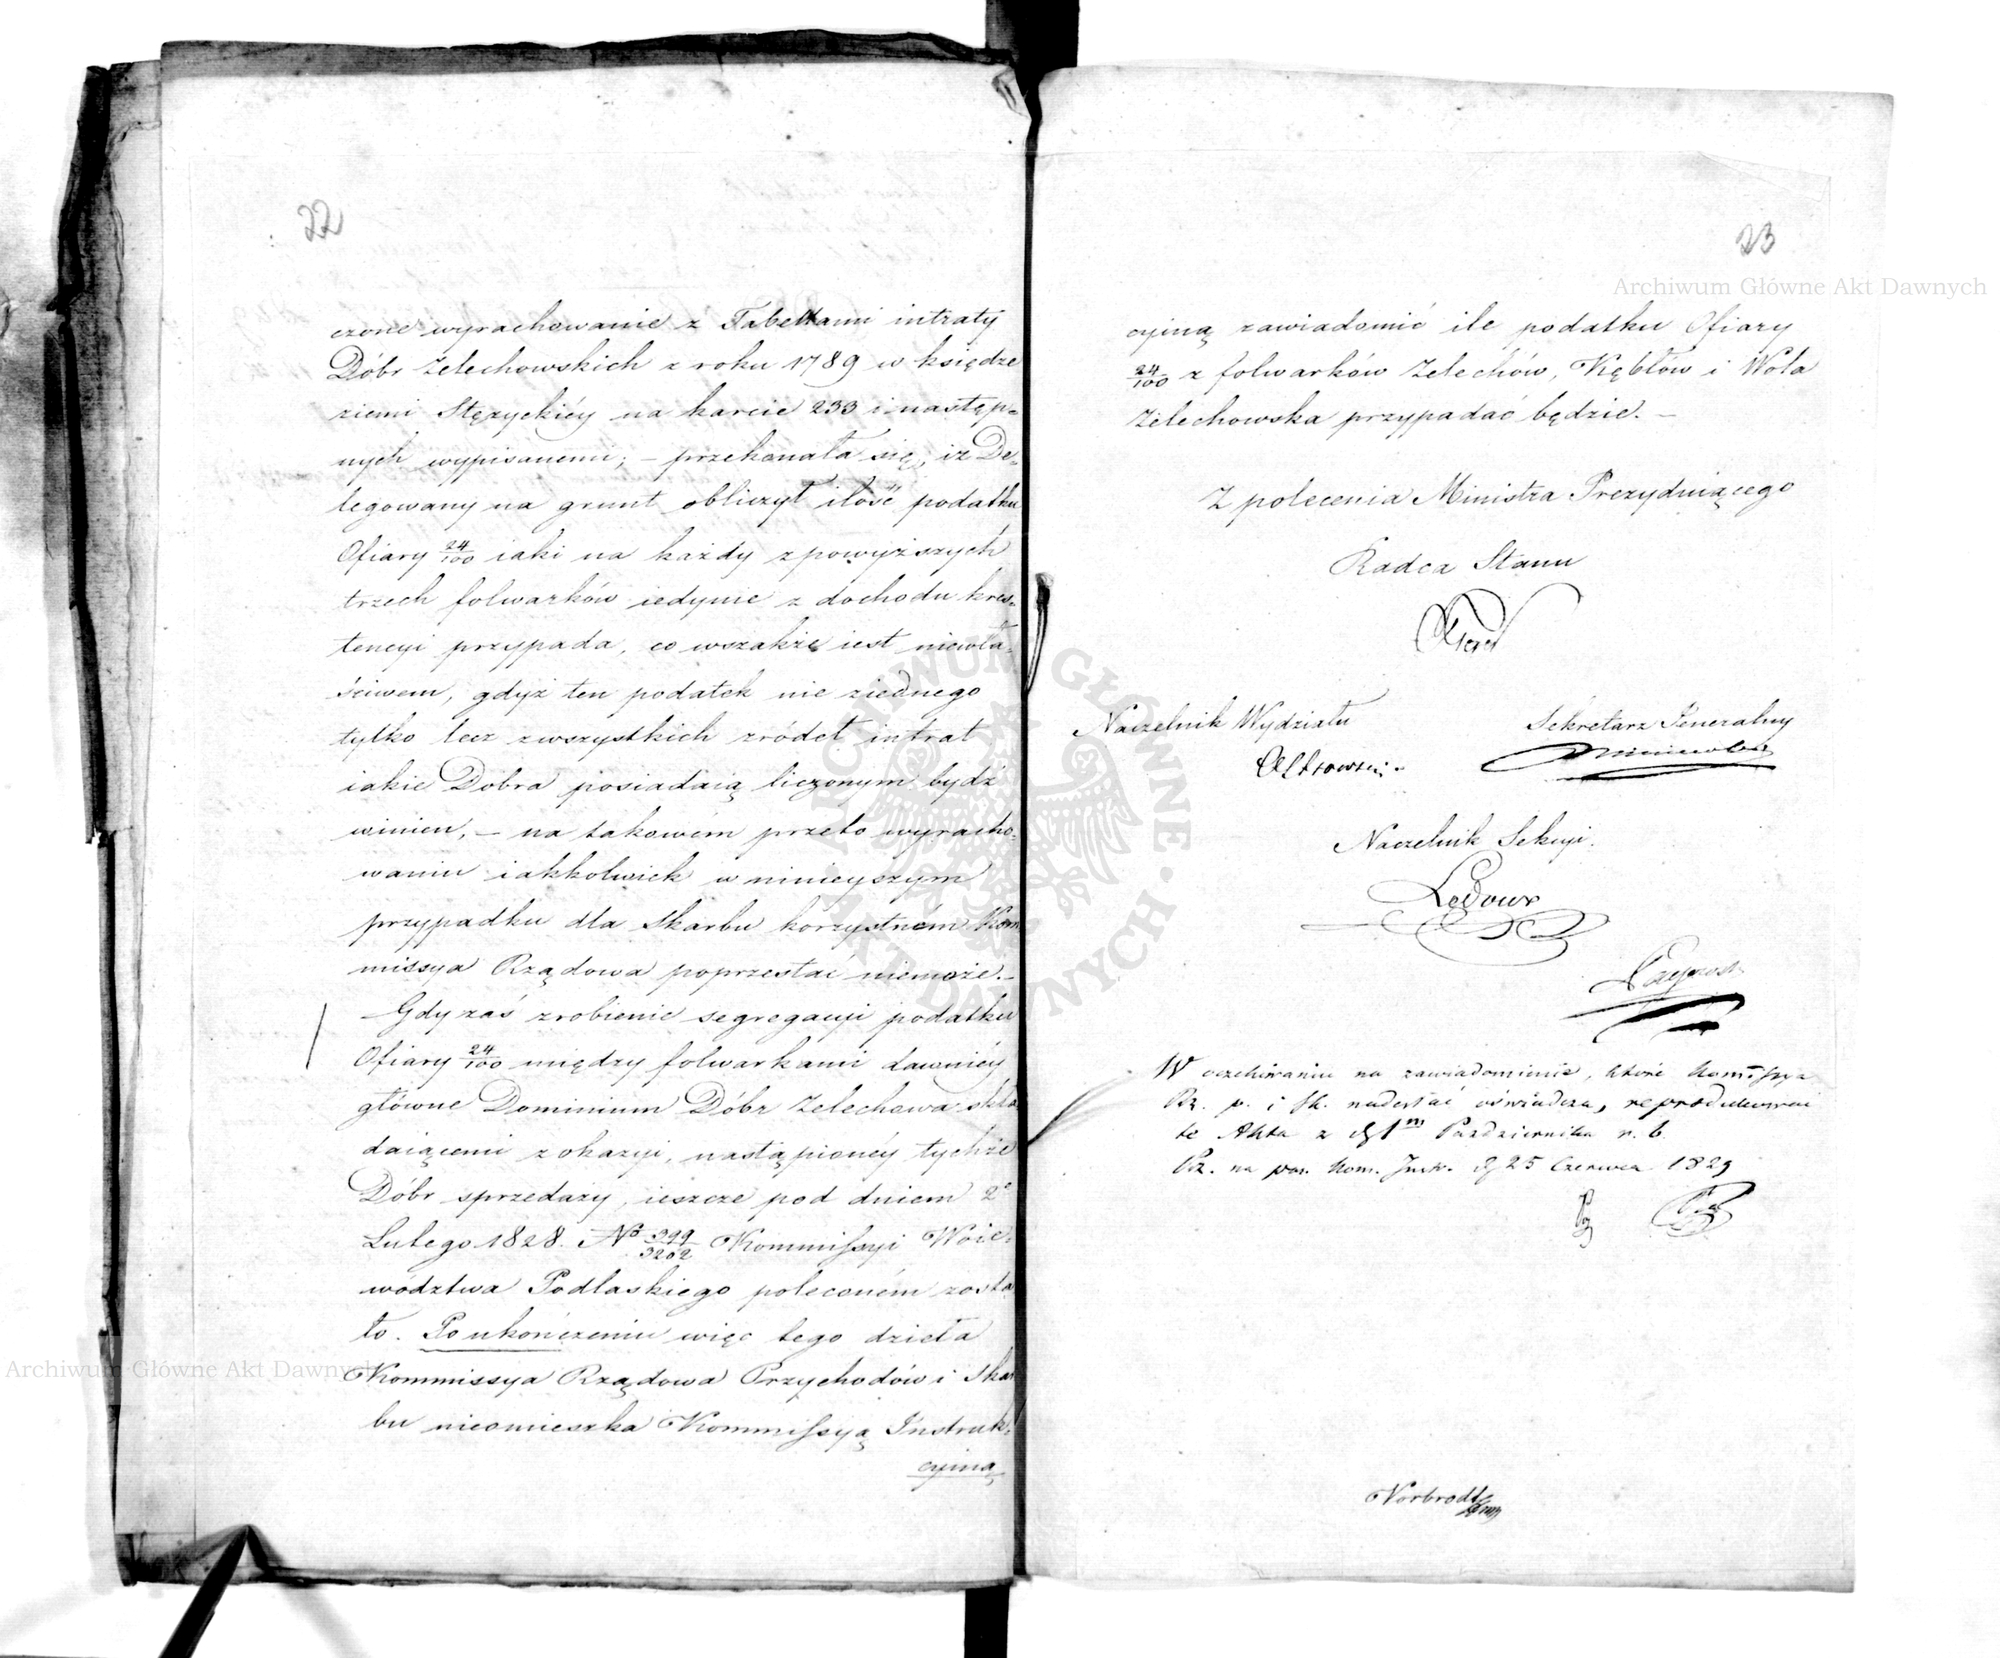 22
czone wyrachowanie z Tabellami intraty
Dóbr Żelechowskich z roku 1789 w księdze
ziemi Stężyckiéy na karcie 233 i następ=
nych wypisanemi; – przekonała się, iż De=
legowany na grunt obliczył ilość podatku
Ofiary 24/100 iaki na każdy z powyższych
trzech folwarków iedynie z dochodu kres=
tencyi przypada, co wszakże iest niewła=
ściwem, gdyż ten podatek nie ziednego
tylko lecz zwszystkich źródeł intrat
iakie Dobra posiadaią liczonym bydź
winien, – na takowém przeto wyracho=
waniu iakkolwiek w ninieyszym
przypadku dla Skarbu korzystném Kom
missya Rządowa poprzestać niemoże. –
Gdy zaś zrobienie segregacyi podatku
Ofiary 24/100 między folwarkami dawniéy
główne Dominium Dóbr Żelechowa skła
daiącemi z okazyi, nastąpionéy tychże
Dóbr sprzedaży, ieszcze pod dniem 2º
Lutego 1828. Nº 399/3202 Kommissyi Woie=
wództwa Podlaskiego poleconém zosta
ło. Po ukończeniu więc tego dzieła
Kommissya Rządowa Przychodów i Skar
bu nieomieszka Kommissyą Instruk=
cyiną
23
Archiwum Główne Akt Dawnych
cyiną zawiadomić ile podatku Ofiary
24/100 z folwarków Żelechów, Kębłów i Wola
Żelechowska przypadać będzie. –
Z polecenia Ministra Prezyduiącego
Radca Stanu
Naczelnik Wydziału
Sekretarz Jeneralny
Naczelnik Sekcyi.
Ledoux
W oczekiwaniu na zawiadomienie, które Kommissya
Rz. p. i Sk. nadesłać oświadcza, reprodukować
te Akta z d. 1m Października r. b.
na pos. Kom. Instr. d 25 Czerwca 1829
Norbrodt
Archiwum Główne Akt Dawnych
ARCHIWUM GŁÓWNE AKT DAWNYCH